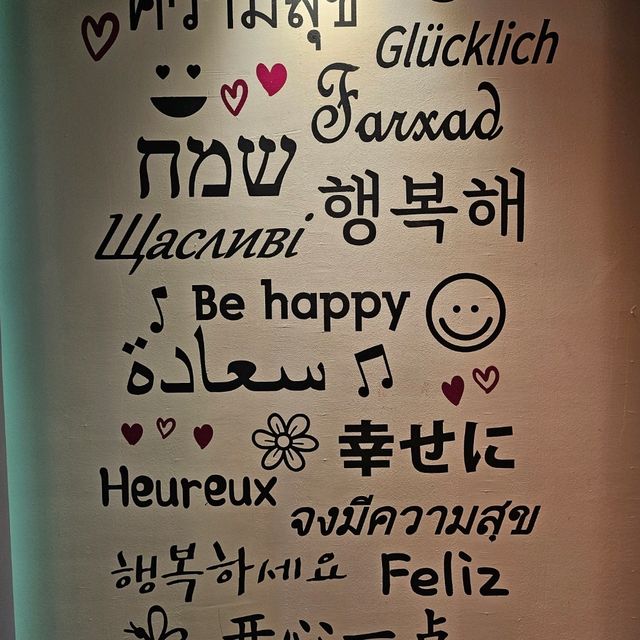 ความสุข
Glücklich
Farxad
שמח
행복해
Щасливі
Be happy
سعادة
幸せに
Heureux
จงมีความสุข
행복하세요
Feliz
开心一点